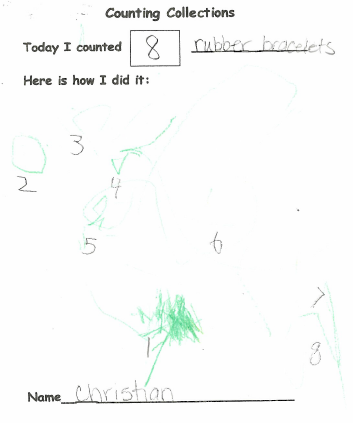 Counting Collections
Today I counted 8 rubber bracelets
Here is how I did it:
3
2
4
5
6
7
1
8
Name Christian